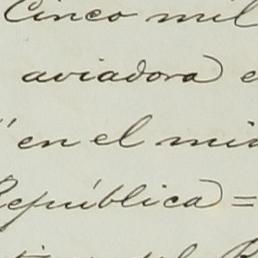 Cinco mil
aviadora
en el
República =